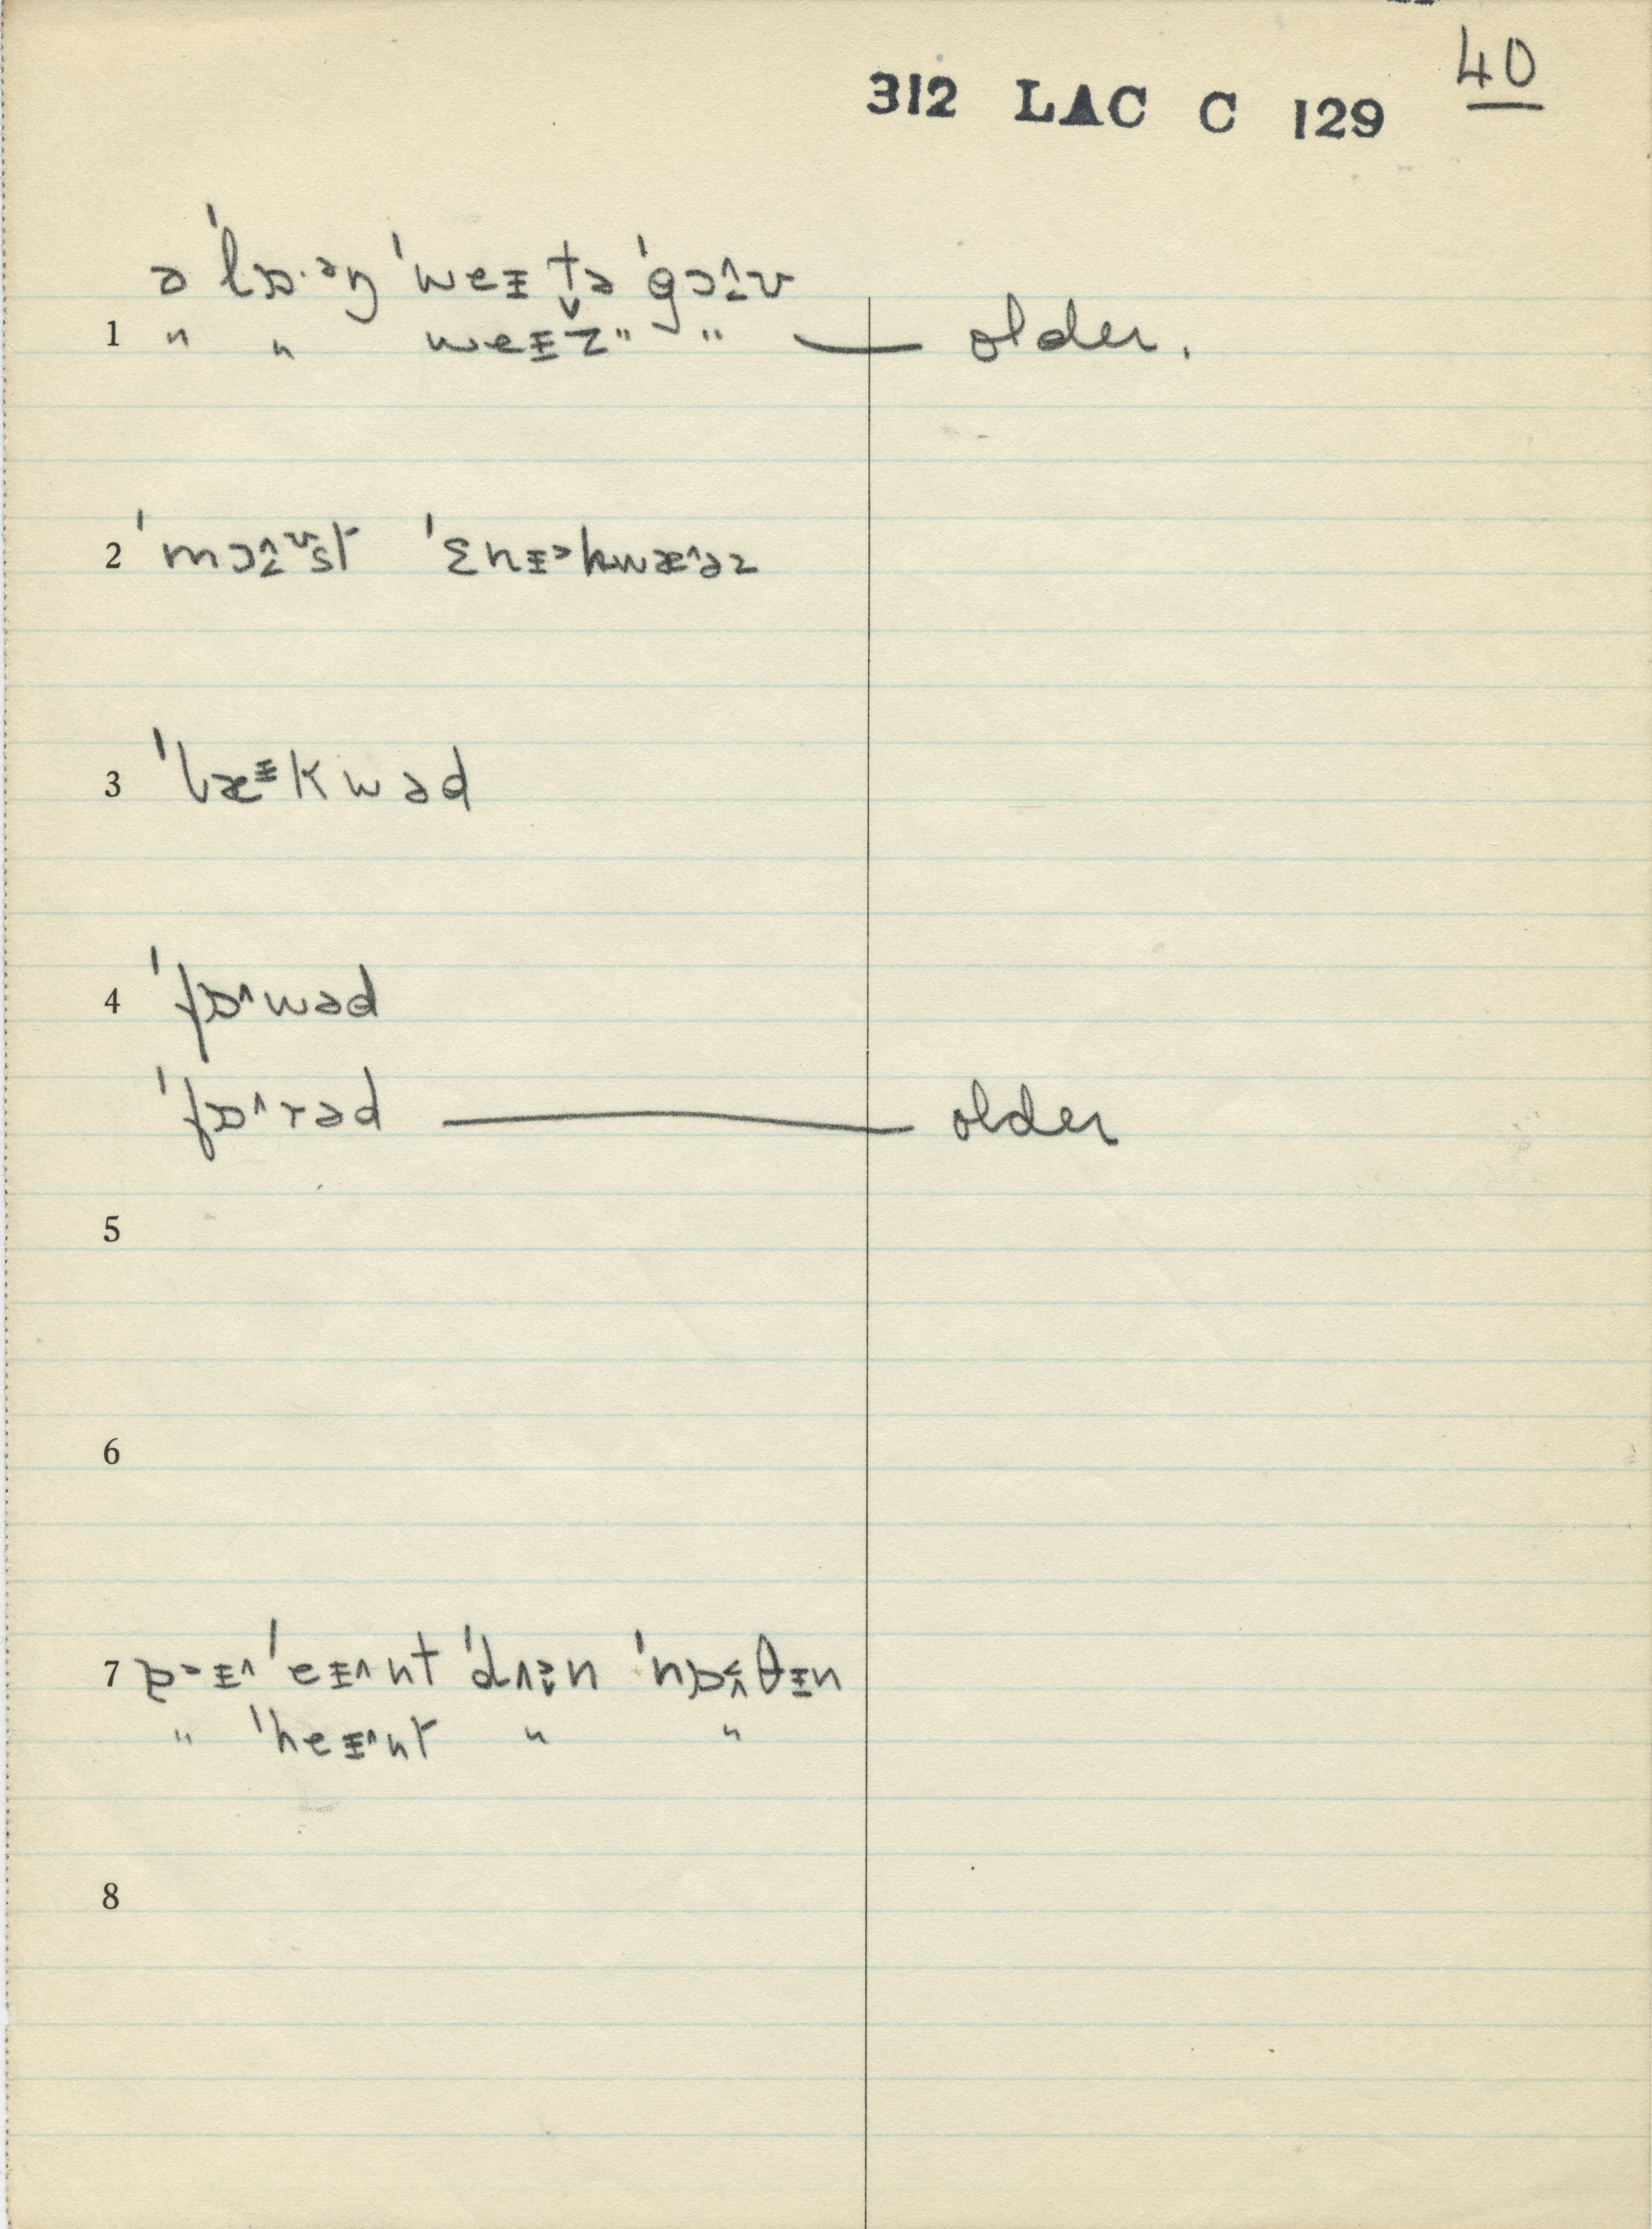 40
312 LAC C 129
ə ˈlɒ·ᵊŋ ˈweɪ t̬ə ˈgɔ˄ʊ
1 " " weɪz̆ " " — older.
2 ˈmɔ˄ᶷst ˈɛnɪ˃kwæ˄əɹ
3 ˈbæᶦkwəd
4 ˈfɒ˄wəd
ˈfɒ˄rəd — older
5
6
7 ɒ˃ɪ˄ ˈeɪ˄nt ˈdʌ˃n ˈnɒ˂θɪn
" ˈheɪ˄nt " "
8